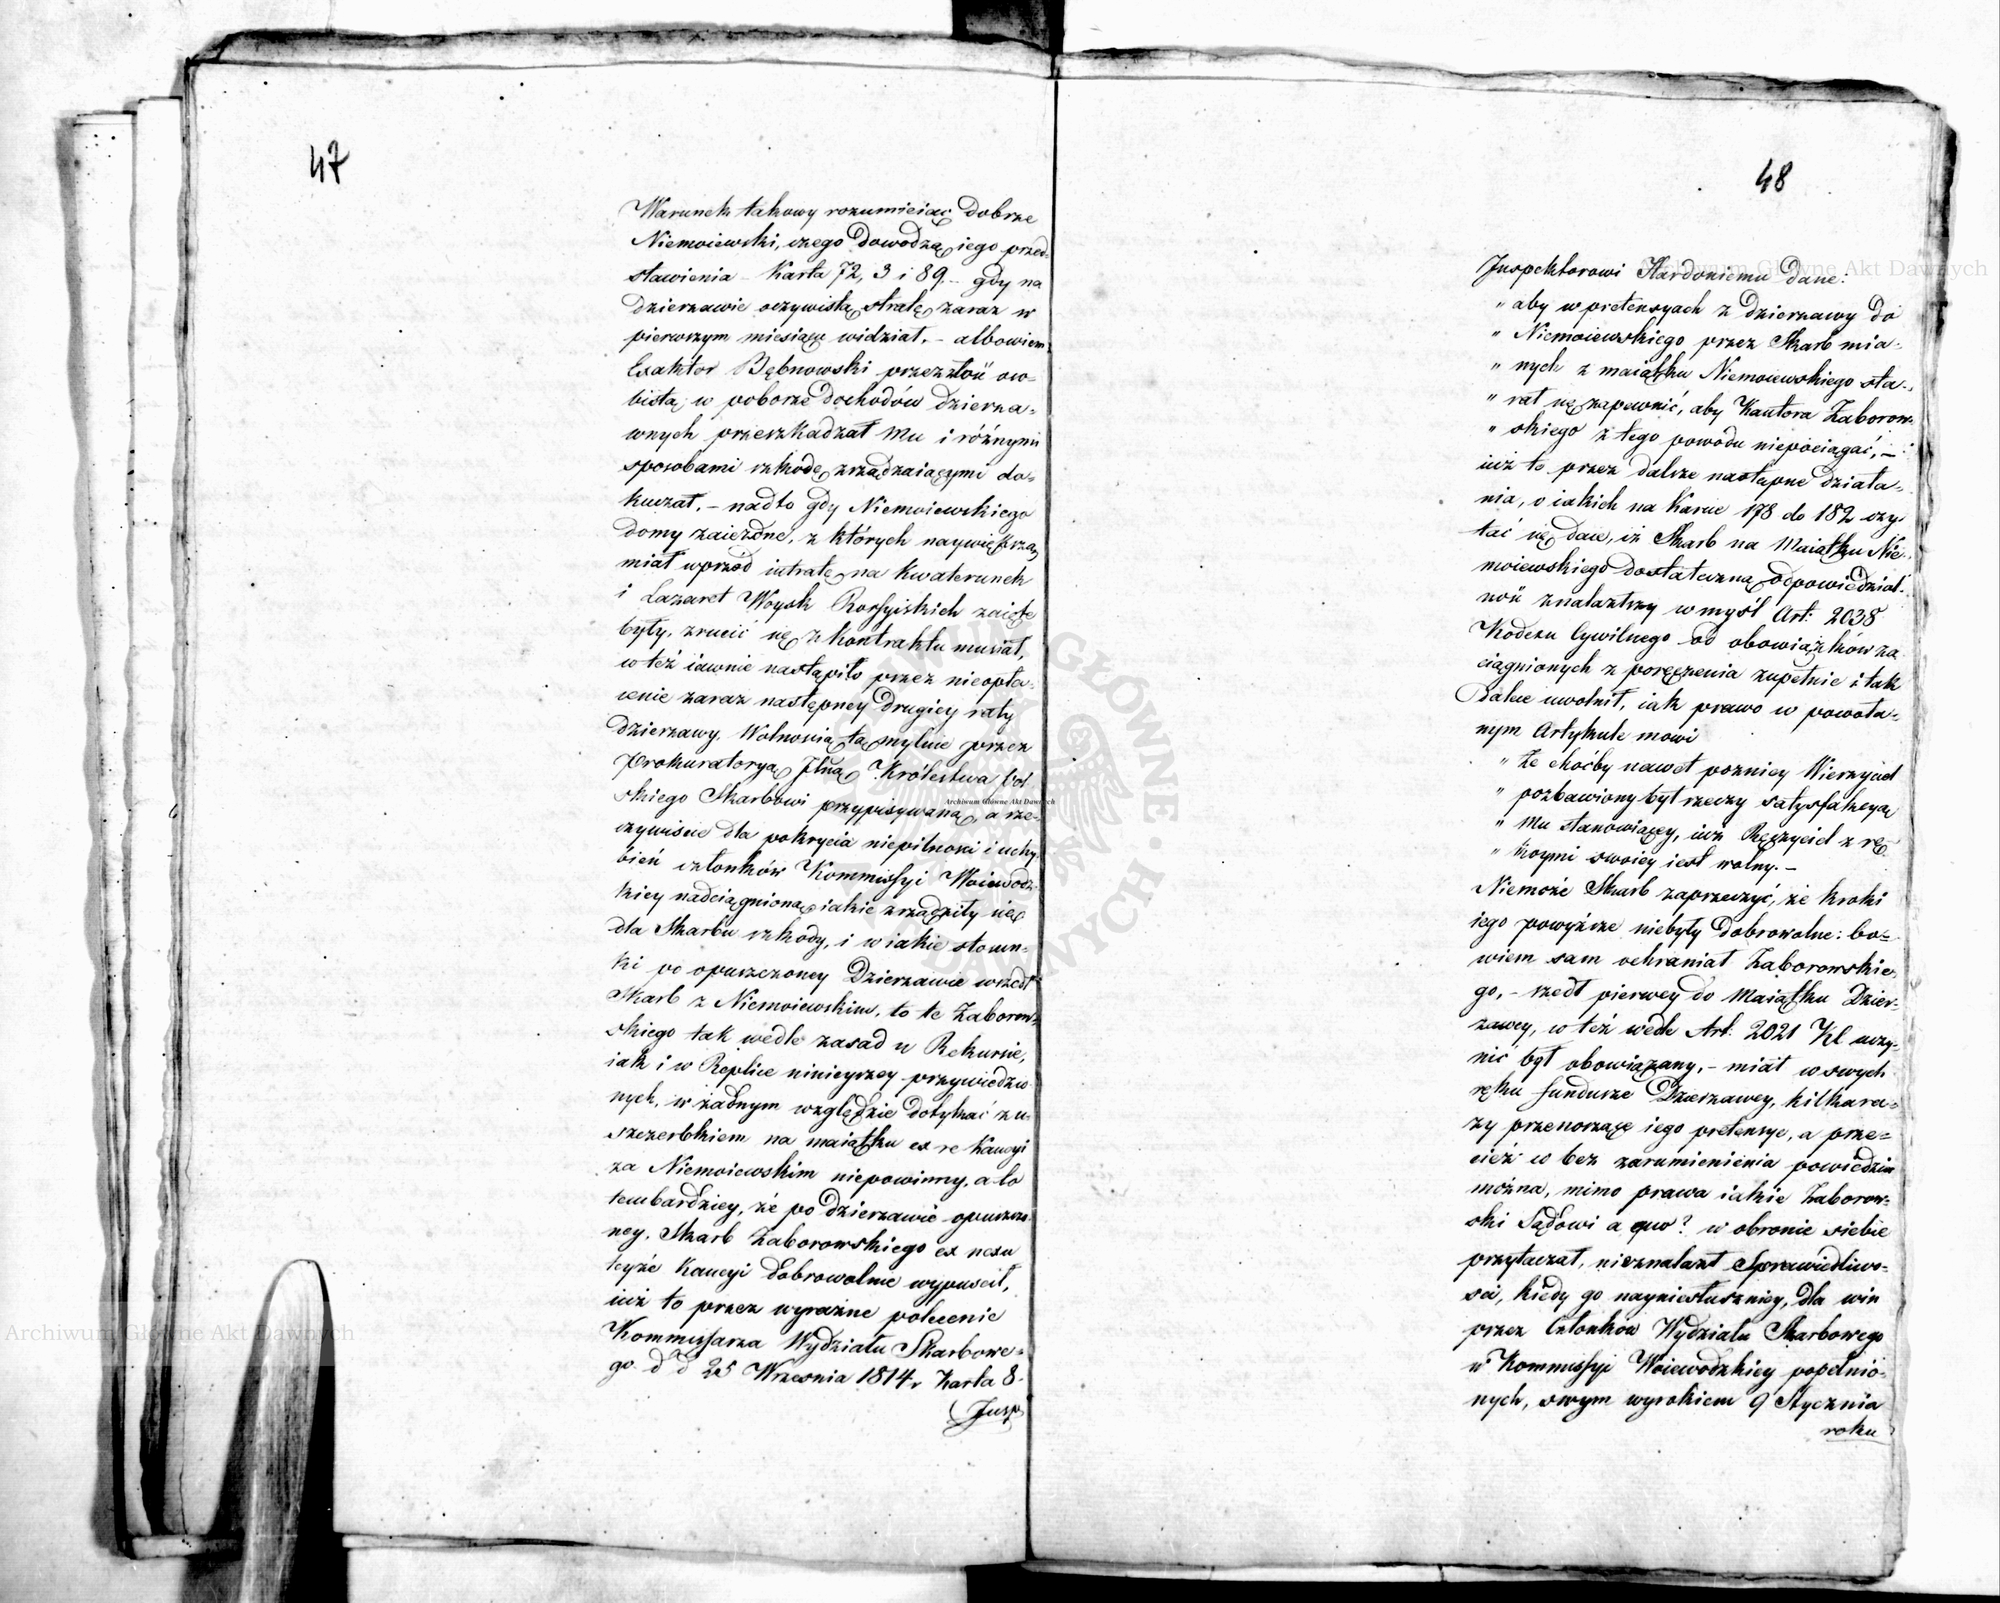 47
Warunek takowy rozumieiąc Dobrze
Niemoiewski, czego Dowodzą iego przed-
stawienia – Karta 72, 3 i 89 – gdy na
Dzierzawie oczywistą stratę zaraz w
pierwszym miesiącu widział, – albowiem
Exaktor Bębnowski przez złość oso-
bistą w poborze Dochodów Dzierza-
wnych przeszkadzał Mu i różnymi
sposobami szkodę zrządzaiącymi do-
kuczał, – nadto gdy Niemoiewskiego
Domy zaiezdne, z których naywiększą
miał wprzód intratę na kwaterunek
i Lazaret Woysk Rossyiskich zaięte
były, zrucić się z kontraktu musiał,
co też iawnie nastąpiło przez nieopła-
cenie zaraz następney drugiey raty
Dzierzawy. Wolnością tą mylnie przez
Prokuratoryą Jlną Królestwa Pol
skiego Skarbowi przypisywaną, a rze-
czywiscie dla pokrycia niepilnosci i uchy
bień członków Kommissyi Woiewodz-
kiey nadciągnioną iakie zrządziły się
dla Skarbu szkody, i w iakie stosun-
ki po opuszczoney Dzierzawie wszedł
Skarb z Niemoiewskim, to te Zaborow-
skiego tak wedle zasad w Rekursie,
iak i w Replice ninieyszey przywiedzio
nych, w żadnym względzie dotykać z u-
szczerbkiem na maiątku ex re Kaucyi
za Niemoiewskim niepowinny, a to
tembardziey, że po Dzierzawie opuszczo-
ney, Skarb Zaborowskiego ex nexu
teyże Kaucyi dobrowolnie wypuscił,
iuż to przez wyraźne polecenie
Kommissarza Wydziału Skarbowe-
go d d 25 Września 1814 r Karta 8.
Jnsp
48
Jnspektorowi Hardoniemu dane:
" aby w pretensyach z Dzierzawy do
" Niemoiewskiego przez Skarb mia-
" nych z maiątku Niemoiewskiego sta-
" rał się zapewnić, aby Kautora Zaborow-
" skiego z tego powodu niepociągać, –
iuż to przez dalsze następne działa-
nia, o iakich na Karcie 178 do 182 czy-
tać się daie, iż Skarb na Maiątku Nie-
moiewskiego Dostateczną odpowiedzial-
ność znalazłszy w myśl Art: 2038
Kodexu Cywilnego od obowiązków za
ciągnionych z poręczenia zupełnie i tak
Dalece uwolnił, iak prawo w powoła-
nym Artykule mowi
" Że choćby nawet pozniey Wierzyciel
" pozbawiony był rzeczy satysfakcyą
" Mu stanowiącey, iuż Ręczyciel z rę-
" koymi swoiey iest wolny. –
Niemoże Skarb zaprzeczyć, że kroki
iego powyższe niebyły Dobrowolne: bo-
wiem sam ochraniał Zaborowskie-
go, – szedł pierwey do Maiątku Dzier-
zawcy, co też wedle Art: 2021 Kd uczy-
nić był obowiązany, – miał w swych
ręku fundusze Dzierzawcy, kilkara-
zy przenoszące iego pretensye, a prze-
cież co bez zarumienienia powiedzieć
można, mimo prawa iakie Zaborow-
ski Sądowi a quo? w obronie siebie
przytaczał, nieznalazł Sprawiedliwo-
sci, kiedy go nayniesłuszniey, Dla win
przez Członków Wydziału Skarbowego
w Kommissyi Woiewodzkiey popełnio-
nych, swym wyrokiem 9 Stycznia
roku
Archiwum Główne Akt Dawnych
Archiwum Główne Akt Dawnych
Archiwum Główne Akt Dawnych